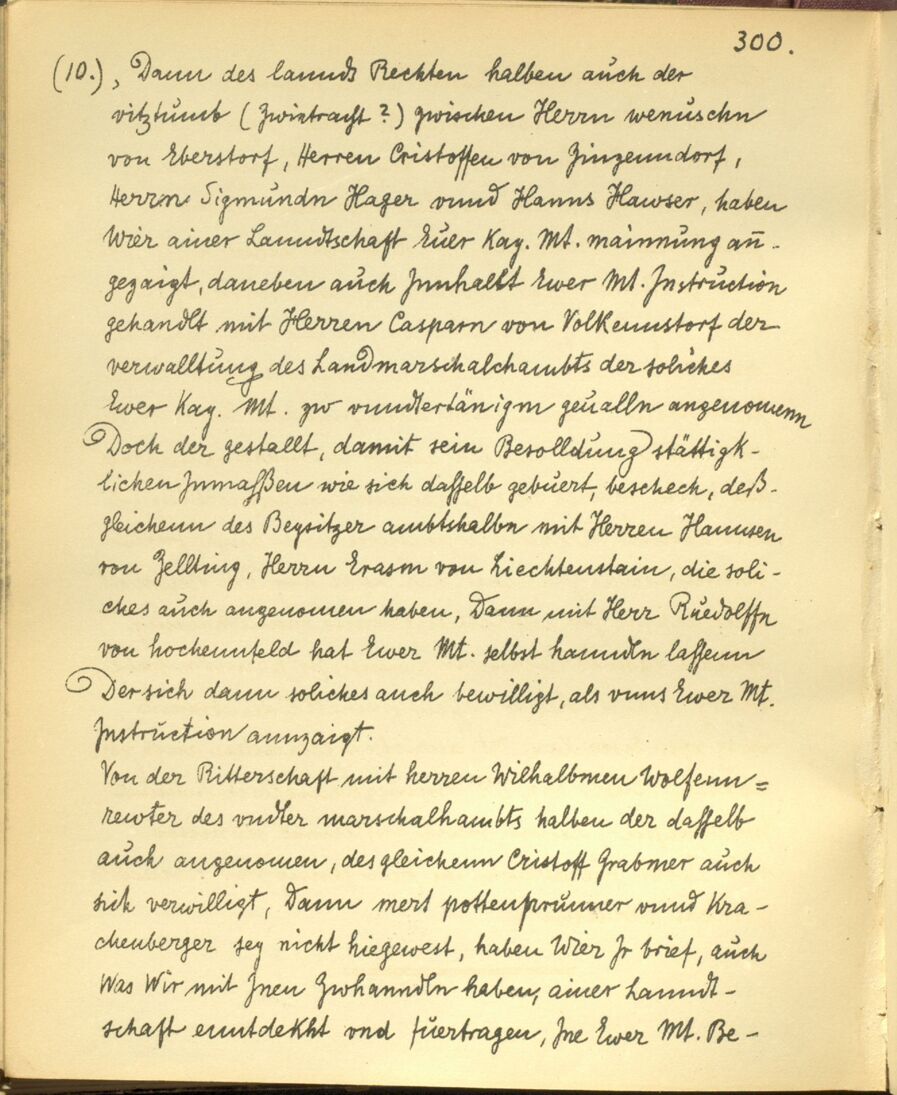 300.
(10.), Dann des lannds Rechten halben auch der
vitztumb (Zwietracht?) zwischen Herrn wenuschn
von Eberstorf, Herren Cristoffen von Zinzenndorf,
Herrn Sigmundn Hager vnnd Hanns Hawser, haben
Wier ainer Lanndtschaft Euer Kay. Mt. mainnung an̄-
gezaigt, daneben auch Jnnhallt Ewer Mt. Instruction
gehandlt mit Herren Casparn von Volkennstorf der
verwalltung des Landmarschalchambts der soliches
Ewer Kay. Mt. zw vnndtertänigm geualln angenomenn
Doch der gestallt, damit sein Besolldung stättigk-
lichen Jnmassßen wie sich dasselb gebuert, beschech, deß-
gleichenn des Beysitzer ambtshalbn mit Herren Hannsen
von Zellting, Herrn Erasm von Liechtenstain, die soli-
ches auch angenomen haben, Dann mit Herr Ruedolffn
von hochennfeld hat Ewer Mt. selbst hanndln lassenn
Der sich dann soliches auch bewilligt, als vnns Ewer Mt.
Instruction annzaigt.
Von der Ritterschaft mit herren Wilhalbmen Wolfenn=
rewter des vndter marschalhambts halben der dasselb
auch angenomen, desgleichenn Cristoff Grabmer auch
sich verwilligt, Dann mert pottenprunner vnnd Kra-
chenberger sey nicht hiegewest, haben Wier Jr brief, auch
Was Wir mit Jnen Zwhanndln haben, ainer Lanndt-
schaft enntdekht vnd fuertragen, Jne Ewer Mt. Be-